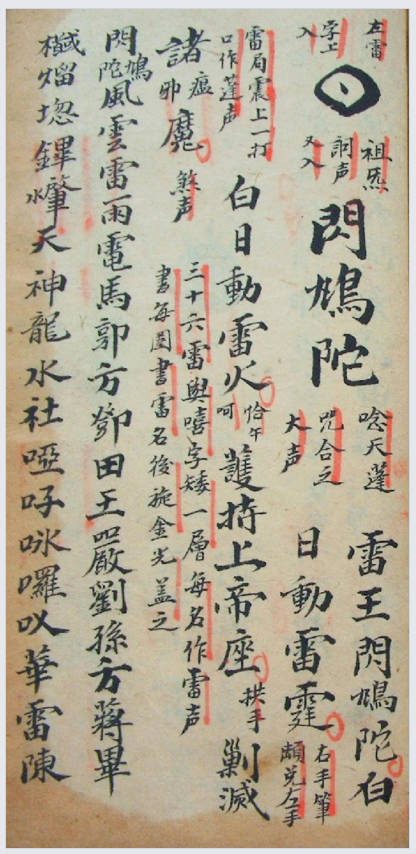 左雷
字上
入
祖炁
訶声
又入
閃鳩陀
唸天蓬
咒合之
大声
雷王閃鳩陀白
日動雷霆
右手筆
左手
雷局震上一打
口作蓬声
白日動雷火
恰午
呵
護持上帝座
拱手
剿滅
諸
瘟
邪
魔
煞声
三十六雷與嘻字矮一層每名作雷声
書每圈書雷名後施金光盖之
閃鳩陀風雲雷雨電馬郭方鄧田王嚴劉孫方蔣畢
水天神龍水社啞吇咏囉華雷陳